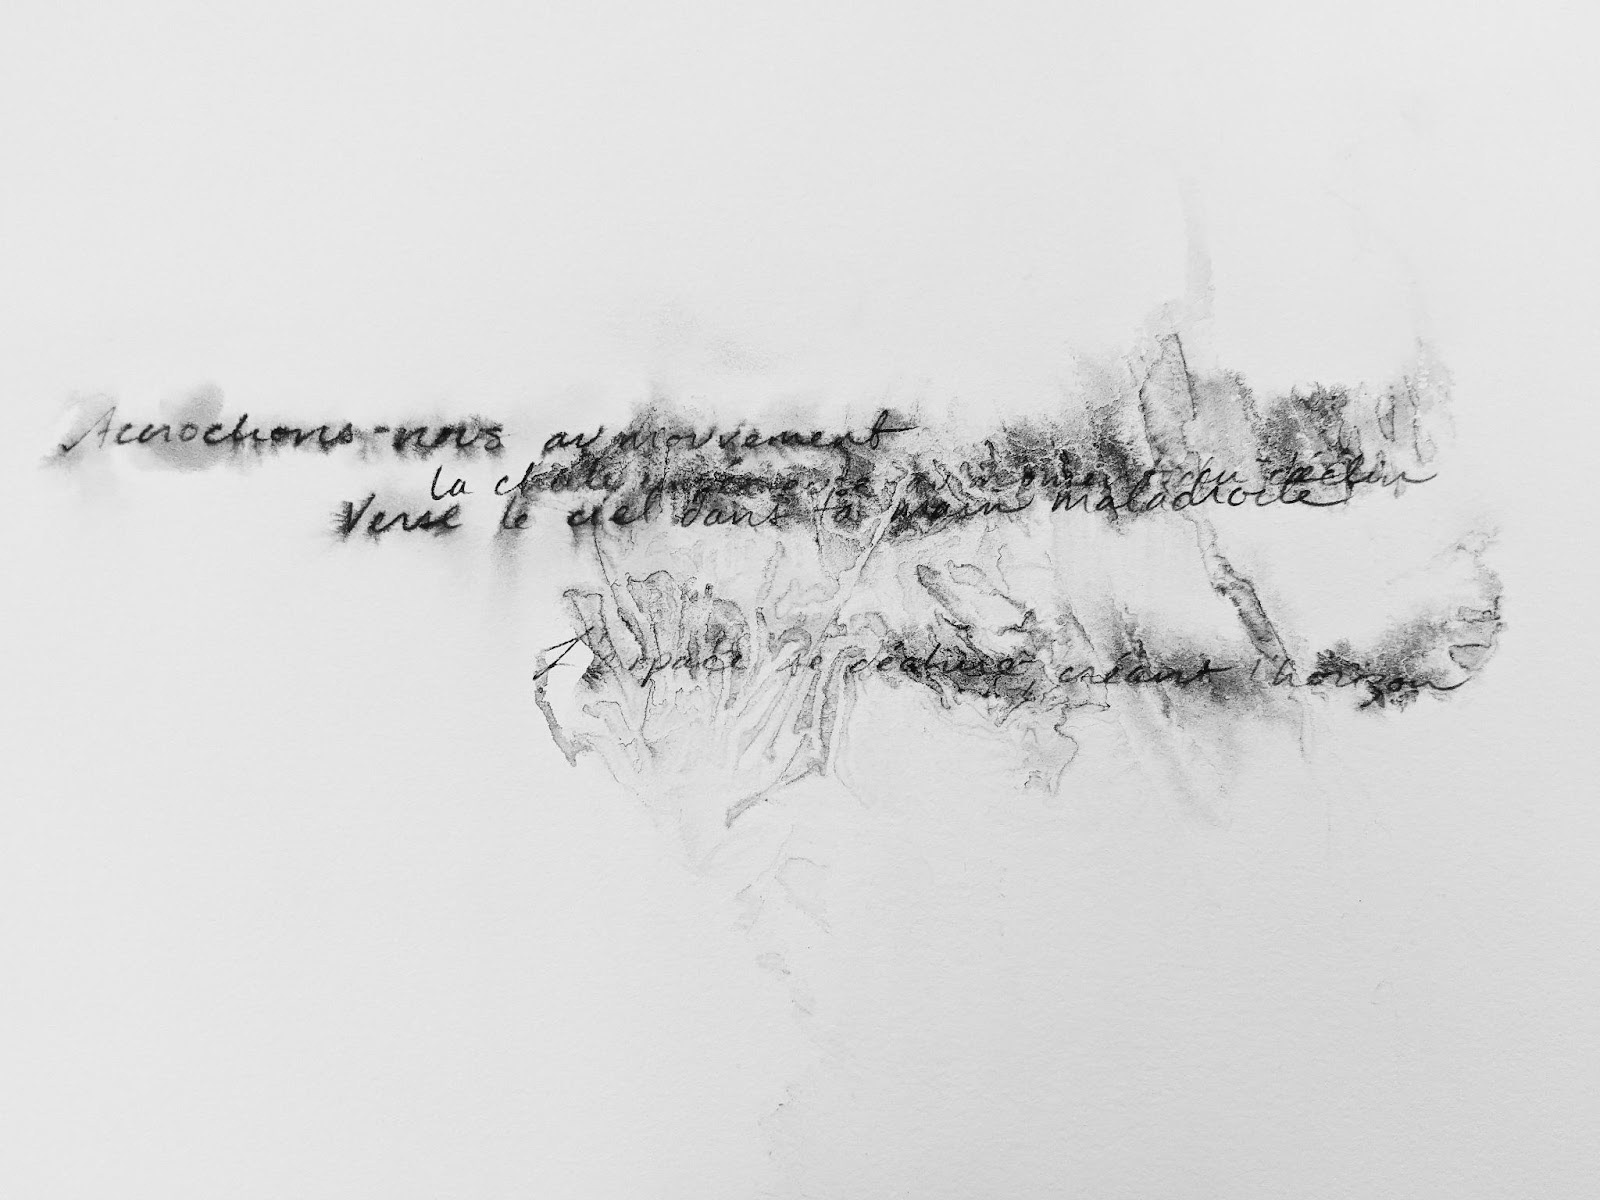 Accrochons-nous au mouvement
la chute au moment du déclin
Verse le ciel dans ta main maladroite
L'espace se déchire créant l'horizon